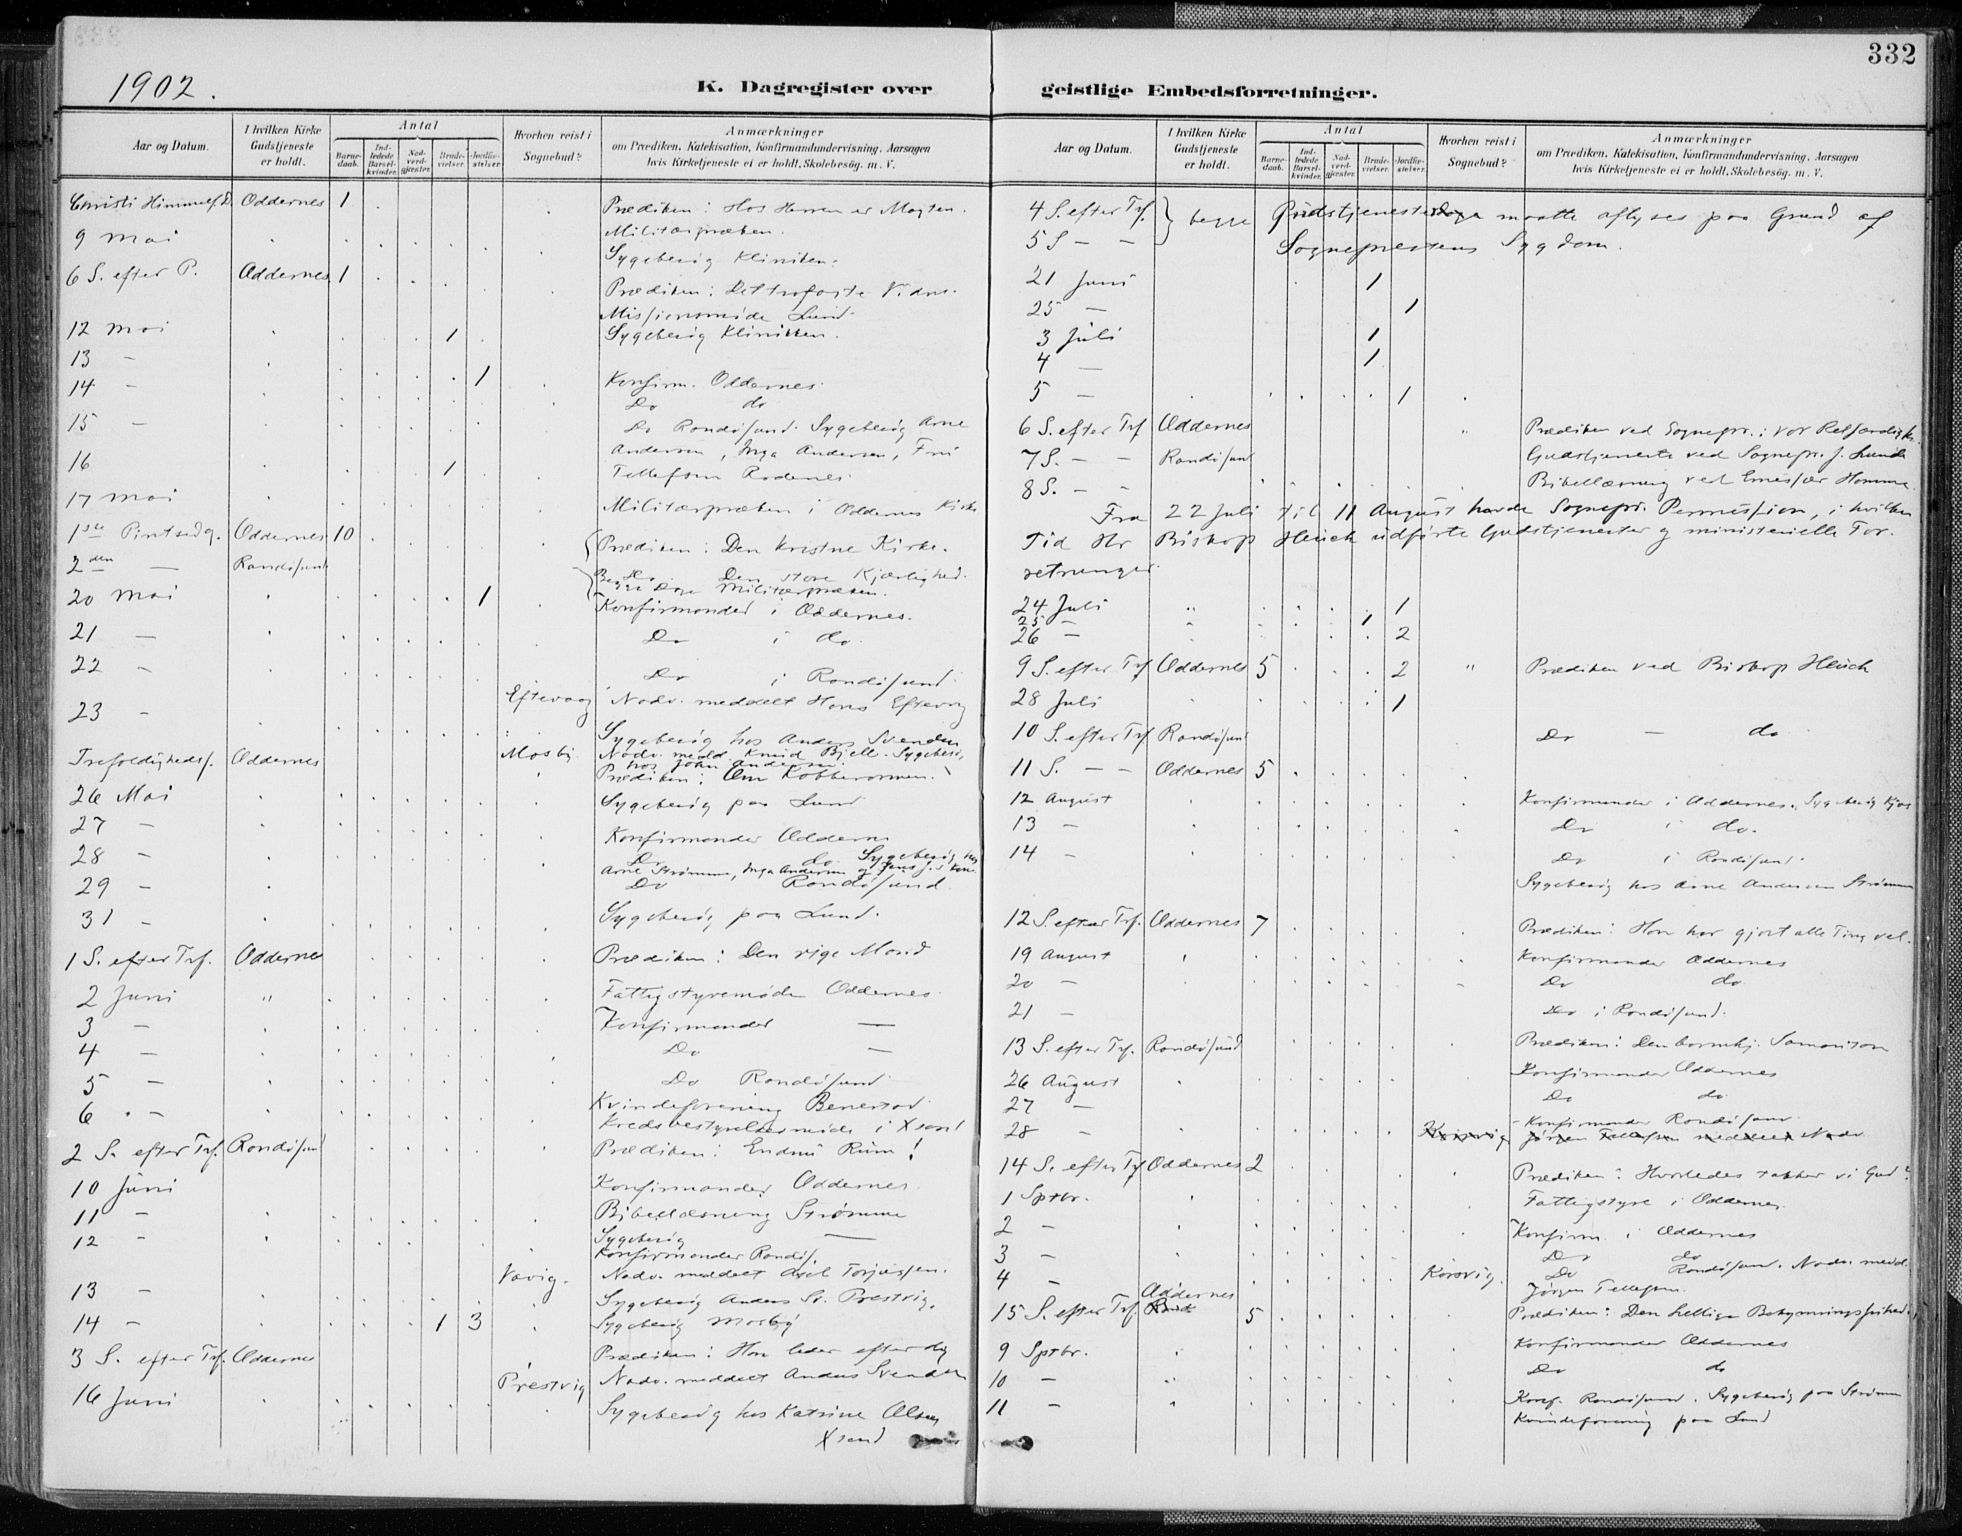 332
1902.
K. Dagregister over geistlige Embedsforretninger.
Aar og Datum.
I hvilken Kirke Gudstjeneste er holdt.
Antal
Barne-daab.
Ind-ledede Barsel-kvinder.
Nad-verd-gjæster.
Brude-vielser.
Jordfæ-stelser.
Hvorhen reist i Sognebud?
Anmærkninger
om Prædiken, Katekisation, Konfirmandundervisning, Aarsagen
hvis Kirketjeneste ei er holdt, Skolebesøg, m. V.
Christi Himmelf. D. Oddernes 1 Prædiken: Hos Herren er Magten.
9 Mai Militærpræken.
Sygebesøg Kliniken.
6 S. efter P. Oddernes 1 Prædiken: Det trofaste Vidne.
Missionsmøde Lund
12 Mai 1 Sygebesøg Klinikken.
13 - 1
14 - Konfirm. Oddernes
Do do
15 - Do Randøsund. Sygebesøg Arne
Andersen, Inga Andersen, Fru
16 1 Tellefsen Rodenes
17 Mai Militærpræken i Oddernes Kirke
1ste Pintsedg. Oddernes 10 Prædiken: Den kristne Kirke.
2den - Randøsund Do Den store Kjærlighed.
Begge Dage Militærpræken.
20 Mai 1 Konfirmander i Oddernes.
21 - Do i do.
22 - Do i Randøsund
23 - Eftevaag Nadv. meddelt Hans Eftevag
Sygebesøg hos Anders Svendsen
Trefoldighedsf. Oddernes Mosby Nadv. medd. Knud Bjelle. Sygebesøg
hos John Andersen
Prædiken: Om Kobberormen.
26 Mai Sygebesøg paa Lund
27 - Konfirmander Oddernes
28 - Do do Sygebesøg hos
Arne Strømme, Inga Andersen og
29 - Do Randøsund
31 - Sygebesøg paa Lund.
1 S. efter Trf. Oddernes Prædiken: Den rige Mand
2 Juni " Fattigstyremøde Oddernes
3 - Konfirmander -
4 - Do -
5 - Do Randøsund
6 - Kvindeforening Benestad
Kredsbestyrelsesmøde i Xsand
2 S. efter Trf. Randøsund Prædiken: Endnu Rum!
10 Juni Konfirmander Oddernes
11 - Bibellæsning Strømme
12 - Sygebesøg -
Konfirmander Randøs.
13 - Vaavig. Nadv. meddelt Axel Torjussen.
Sygebesøg Anders Sv. Prestvig.
14 - 1 3 Sygebesøg Mosby
3 S. efter Trf. Oddernes Prædiken: Han leder efter dig
16 Juni Prestvig Nadv. meddelt Anders Svendsen
Sygebesøg hos Katrine Olsen
Xsand
Aar og Datum.
I hvilken Kirke Gudstjeneste er holdt.
Antal
Barne-daab.
Ind-ledede Barsel-kvinder.
Nad-verd-gjæster.
Brude-vielser.
Jordfæ-stelser.
Hvorhen reist i Sognebud?
Anmærkninger
om Prædiken, Katekisation, Konfirmandundervisning, Aarsagen
hvis Kirketjeneste ei er holdt, Skolebesøg, m. V.
4 S. efter Trf. } begge Gudstjenester maatte aflyses paa Grund af
5 S - - Sognepræstens Sygdom.
21 Juni 1
25 - 1
3 Juli 1
4 - 1
5 - 1
6 S. efter Trf Oddernes " Prædiken ved Sognepr.: Vor Retfærdigh.
7 S. - - Randøsund Gudstjeneste ved Sognepr. J. Lunde
8 S. - - Bibellæsning ved Emissær Homme.
Fra 22 Juli til 11 August havde Sognepr. Permission, i hvilken
Tid Hr Biskop Heuch udførte Gudstjenester og ministerielle For-
retninger.
24 Juli " 1
25 - " 1
26 - 2
9 S. efter Trf Oddernes 5 2 " Prædiken ved Biskop Heuch
28 Juli 1
10 S. efter Trf Randøsund Do - do
11 S. - - Oddernes 5
12 August Konfirmander i Oddernes. Sygebesøg Kjos
13 - Do i do.
14 - Do i Randøsund.
Sygebesøg hos Arne Andersen Strømme
12 S. efter Trf. Oddernes 7 Prædiken: Han har gjort alle Ting vel.
19 August Konfirmander Oddernes
20 - Do do
21 - Do i Randøsund.
13 S. efter Trf. Randøsund Prædiken: Den barmhj. Samaritan
26 August Konfirmander Oddernes
27 - Do do
28 - Korsvig Konfirmander Randøsund
Jørgen Tellefsen meddelt Nadv
14 S. efter Trf Oddernes 2 Prædiken: Hvorledes takker vi Gud?
1 Sptbr. Fattigstyre i Oddernes
2 - Konfirm. i Oddernes
3 - Do do
4 - Korsvig. Do Randøsund. Nadv. medd.
Jørgen Tellefsen.
15 S. efter Trf. Oddernes Rand 5 Prædiken: Den hellige Bekymringsfrihed.
9 Sptbr. Konfirmander Oddernes
10 - " Do do
11 - Konf. Randøsund. Sygebesøg paa Strømme
Kvindeforening paa Lund